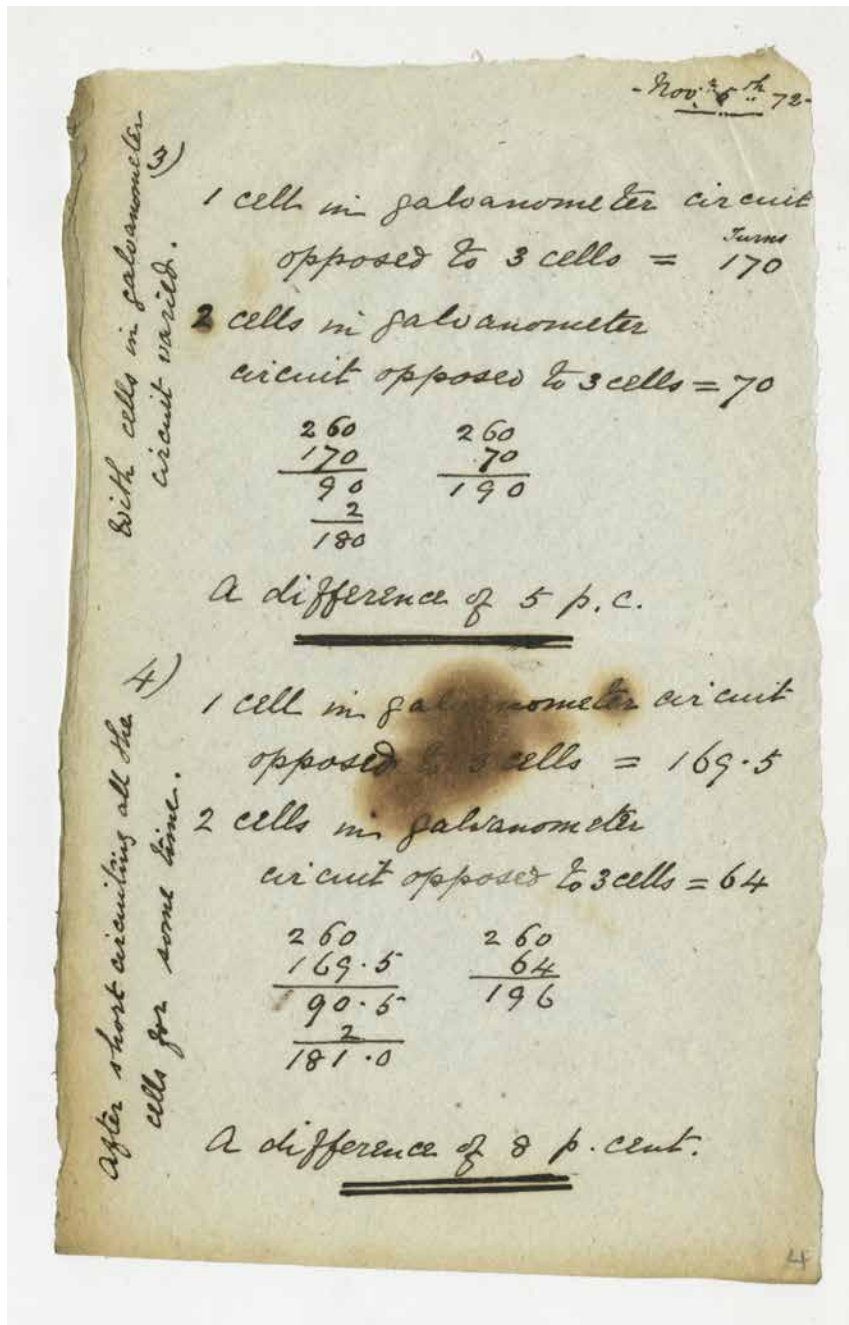 - Novr 5th 72 -
With cells in galvanometer
circuit varied.
3)
1 cell in galvanometer circuit
Turns
opposed to 3 cells = 170
2 cells in galvanometer
circuit opposed to 3 cells = 70
260 260
170 70
90 190
2
180
A difference of 5 p.c.
After short circuiting all the
cells for some time.
4)
1 cell in galvanometer circuit
opposed to 3 cells = 169.5
2 cells in galvanometer
circuit opposed to 3 cells = 64
260 260
169.5 64
90.5 196
2
181.0
A difference of 8 p. cent.
4